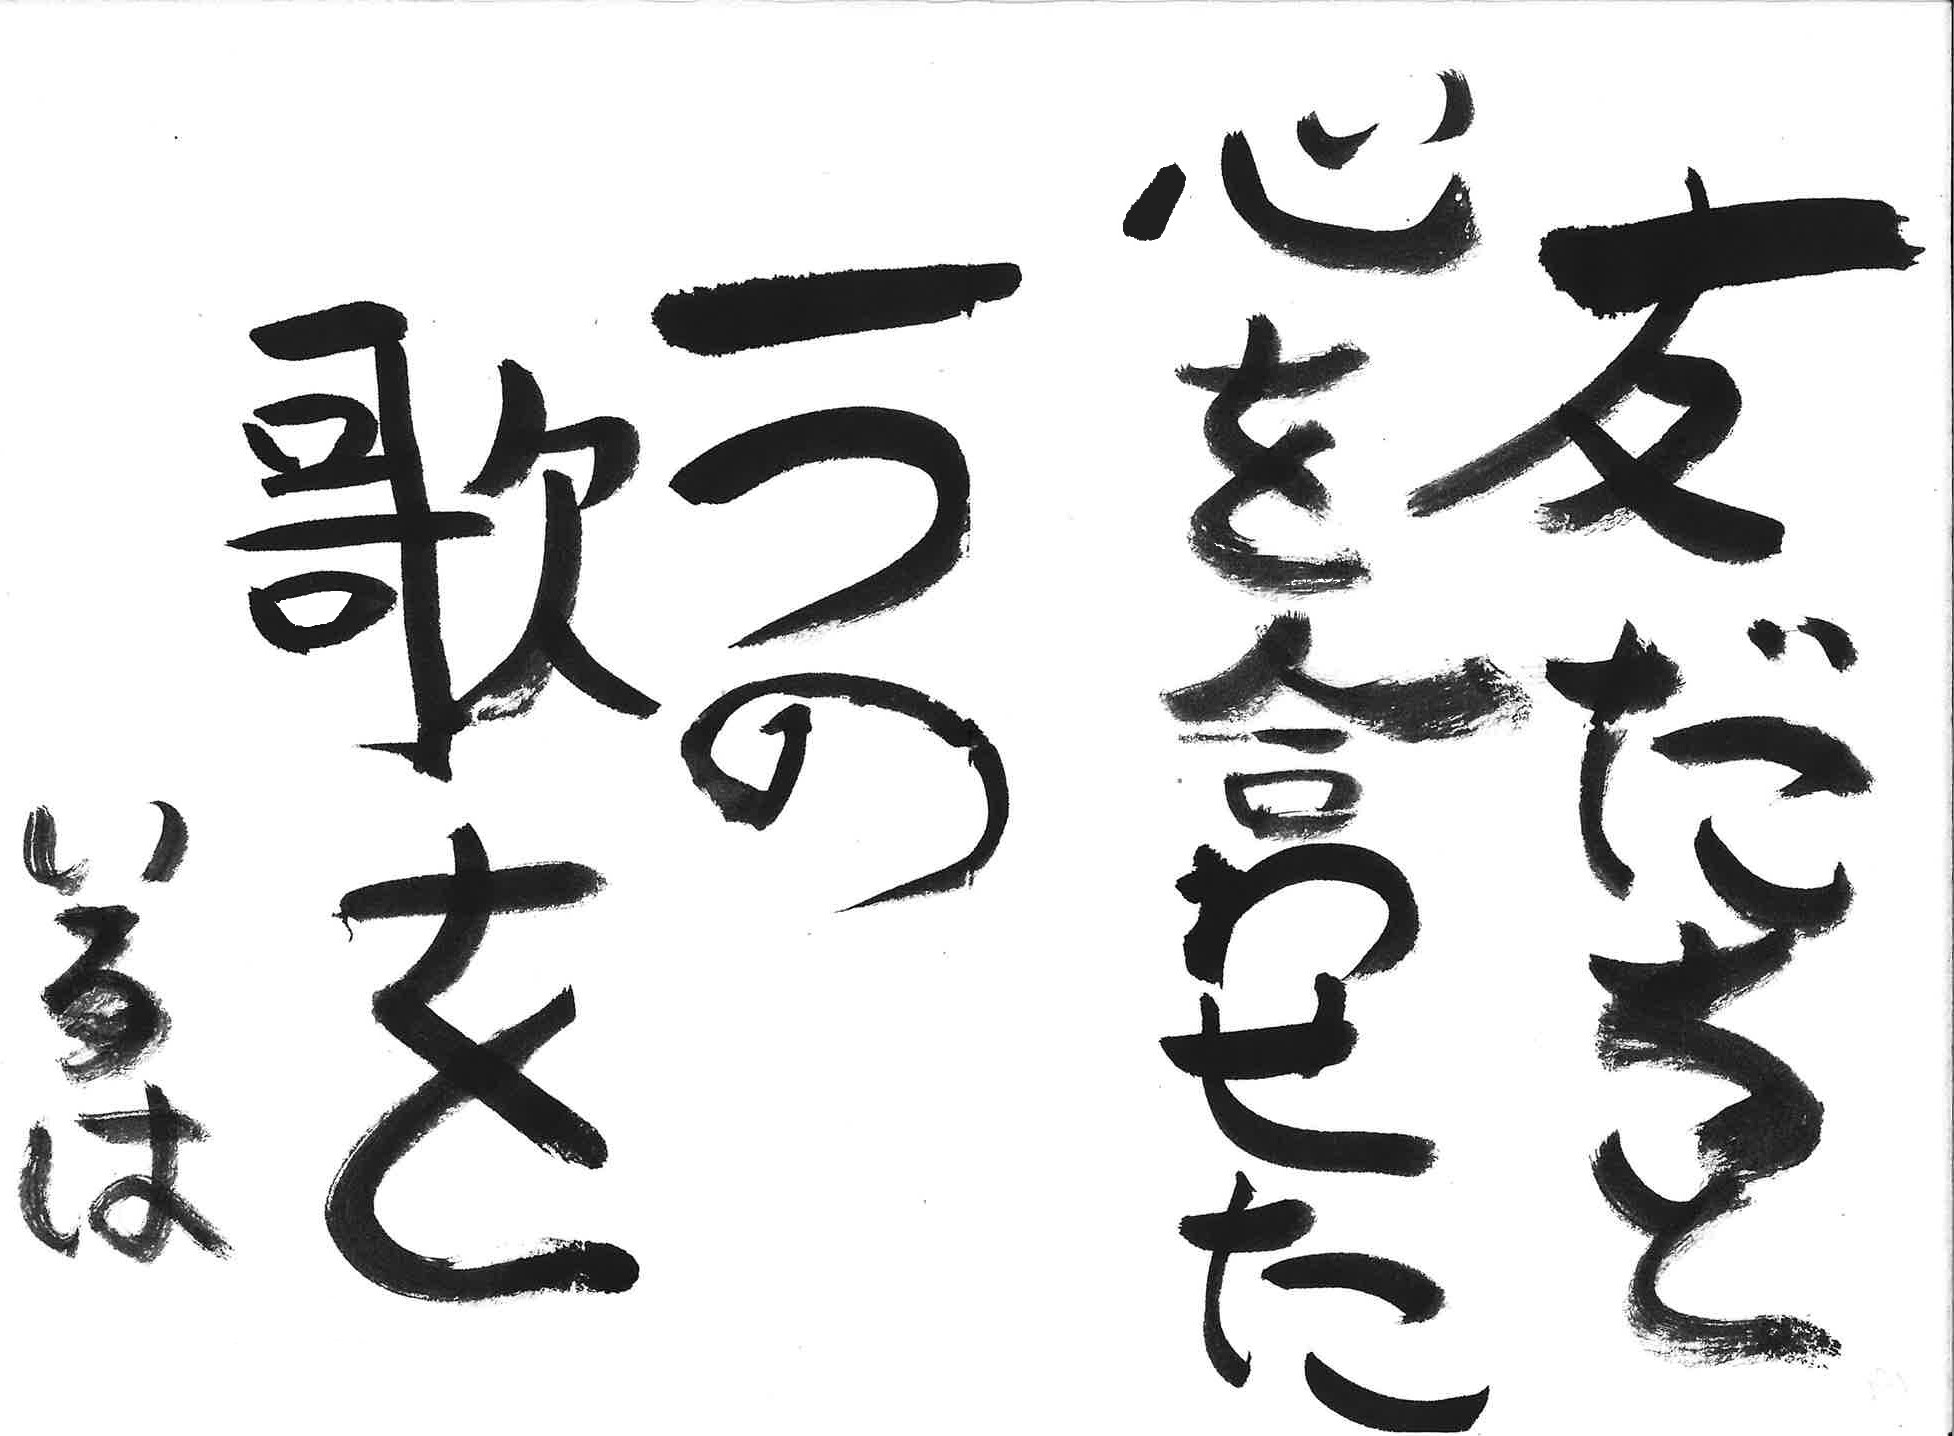 友だちと
心を合わせた
一つの
歌を
いろは